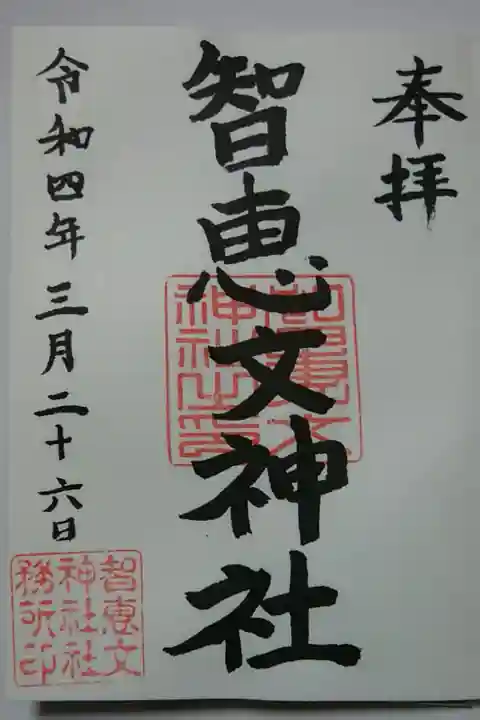 奉拝
智恵文神社
智恵文神社之印
令和四年三月二十六日
智恵文
神社社
務所印